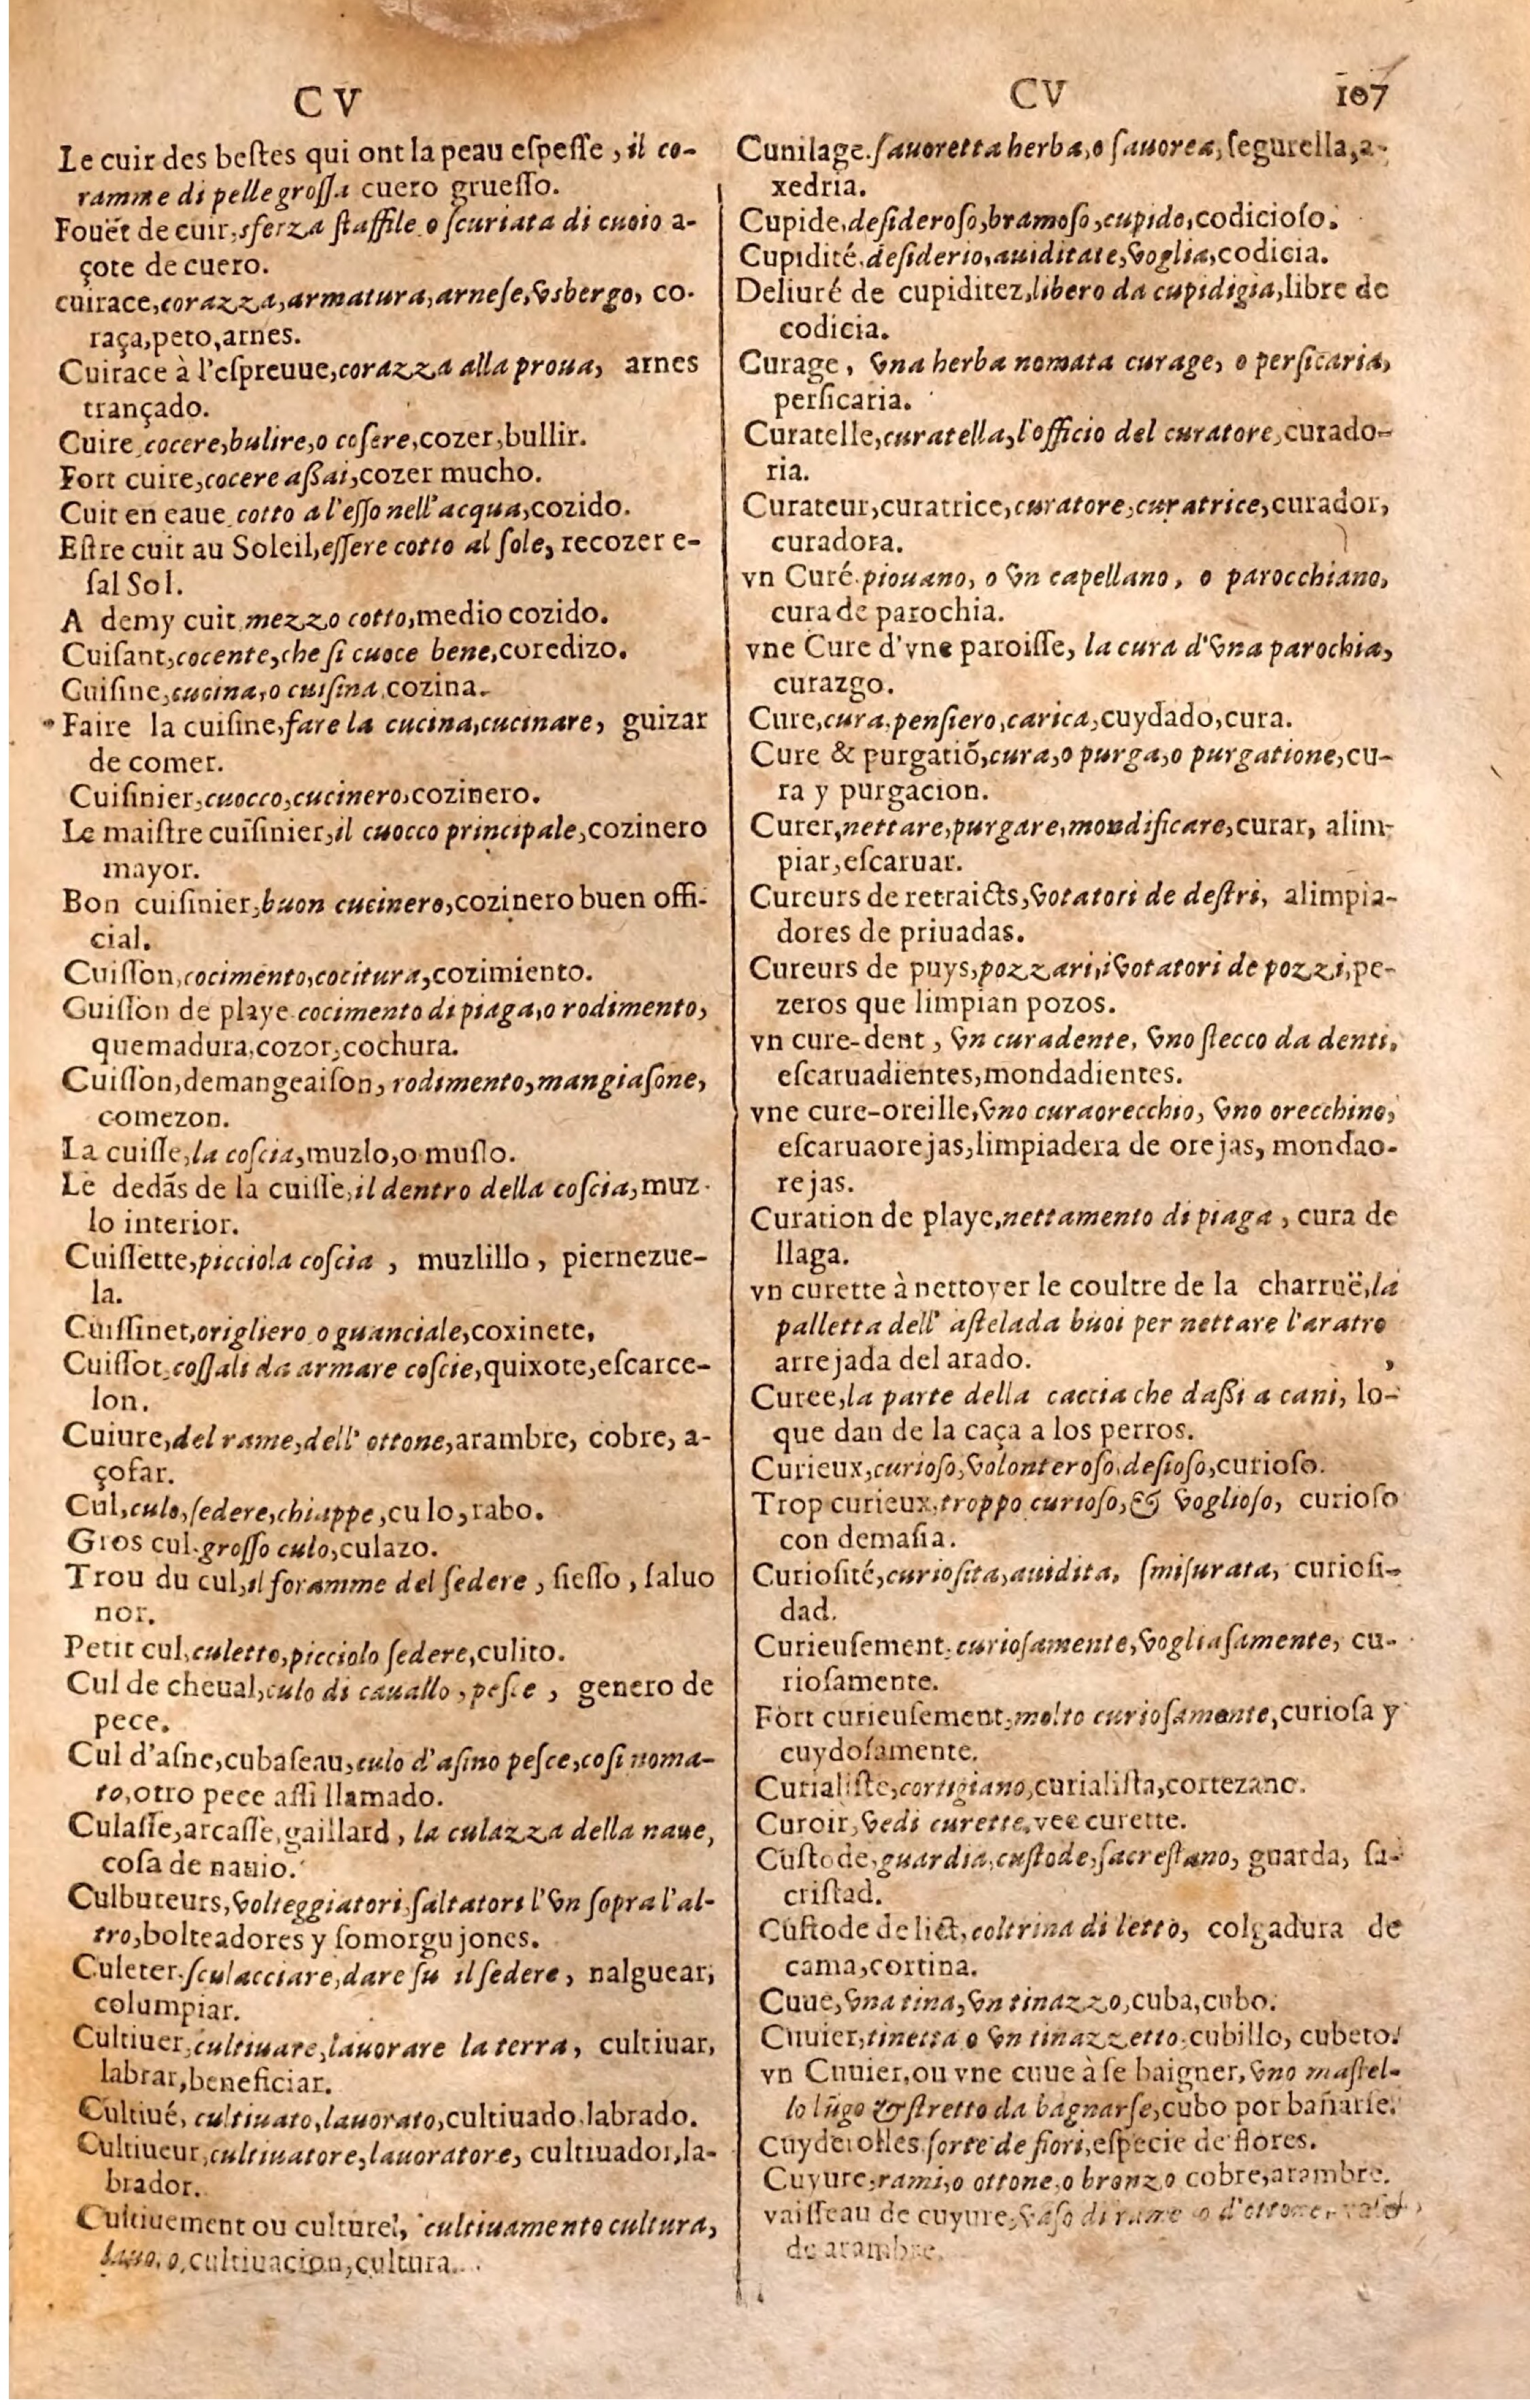 CV
Le cuir des bestes qui ont la peau espesse, il co-
ramme di pelle grossa cuero gruesso.
Fouët de cuir, sferza staffile o scuriata di cuoio a-
çote de cuero.
cuirace, corazza, armatura, arnese, vsbergo, co-
raça, peto, arnes.
Cuirace à l'espreuue, corazza alla proua, arnes
trançado.
Cuire, cocere, bulire, o cosere, cozer, bullir.
Fort cuire, cocere assai, cozer mucho.
Cuit en eaue, cotto a l'esso nell'acqua, cozido.
Estre cuit au Soleil, essere cotto al sole, recozer e-
sal Sol.
A demy cuit, mezzo cotto, medio cozido.
Cuisant, cocente, che si cuoce bene, coredizo.
Cuisine, cucina, o cuisina, cozina.
Faire la cuisine, fare la cucina, cucinare, guizar
de comer.
Cuisinier, cuocco, cucinero, cozinero.
Le maistre cuisinier, il cuocco principale, cozinero
mayor.
Bon cuisinier, buon cucinero, cozinero buen offi-
cial.
Cuisson, cocimento, cocitura, cozimiento.
Guisson de playe. cocimento di piaga, o rodimento,
quemadura, cozor, cochura.
Cuisson, demangeaison, rodimento, mangiasone,
comezon.
La cuisse, la coscia, muzlo, o muslo.
Le dedãs de la cuisse, il dentro della coscia, muz-
lo interior.
Cuissette, picciola coscia, muzlillo, piernezue-
la.
Cuissinet, origliero o guanciale, coxinete,
Cuissot, cossali da armare coscie, quixote, escarce-
lon.
Cuiure, del rame, dell'ottone, arambre, cobre, a-
çofar.
Cul, culo, sedere, chiappe, culo, rabo.
Gros cul. grosso culo, culazo.
Trou du cul, il foramme del sedere, siesso, saluo
nor.
Petit cul, culetto, picciolo sedere, culito.
Cul de cheual, culo di cauallo, pesce, genero de
pece.
Cul d'asne, cubaseau, culo d'asino pesce, cosi noma-
to, otro pece assi llamado.
Culasse, arcasse, gaillard, la culazza della naue,
cosa de nauio.
Culbuteurs, volteggiatori, saltatori l'vn sopra l'al-
tro, bolteadores y somorgujones.
Culeter. sculacciare, dare su il sedere, nalguear,
columpiar.
Cultiuer, cultiuare, lauorare la terra, cultiuar,
labrar, beneficiar.
Cultiué, cultiuato, lauorato, cultiuado, labrado.
Cultiueur, cultiuatore, lauoratore, cultiuador, la-
brador.
Cultiuement ou culture, cultiuamento cultura,
cultiuacion, cultura.
CV 107
Cunilage. sauoretta herba, o sauorea, segurella, a-
xedria.
Cupide, desideroso, bramoso, cupido, codicioso.
Cupidité, desiderio, auiditate, voglia, codicia.
Deliuré de cupiditez, libero da cupidigia, libre de
codicia.
Curage, vna herba nomata curage, o persicaria,
persicaria.
Curatelle, curatella, l'officio del curatore, curado-
ria.
Curateur, curatrice, curatore, curatrice, curador,
curadora.
vn Curé. piouano, o vn capellano, o parocchiano,
cura de parochia.
vne Cure d'vne paroisse, la cura d'vna parochia,
curazgo.
Cure, cura, pensiero, carica, cuydado, cura.
Cure & purgatiõ, cura, o purga, o purgatione, cu-
ra y purgacion.
Curer, nettare, purgare, mondificare, curar, alim-
piar, escaruar.
Cureurs de retraicts, votatori de destri, alimpia-
dores de priuadas.
Cureurs de puys, pozzari, i votatori de pozzi, pe-
zeros que limpian pozos.
vn cure-dent, vn curadente, vno stecco da denti,
escaruadientes, mondadientes.
vne cure-oreille, vno curaorecchio, vno orecchino,
escaruaorejas, limpiadera de orejas, mondao-
rejas.
Curation de playe, nettamento di piaga, cura de
llaga.
vn curette à nettoyer le coultre de la charruë, la
palletta dell' astelada buoi per nettare l'aratro
arrejada del arado. ,
Curee, la parte della caccia che dassi a cani, lo-
que dan de la caça a los perros.
Curieux, curioso, volonteroso, desioso, curioso.
Trop curieux, troppo curioso, & voglioso, curioso
con demasia.
Curiosité, curiosita, auidita, smisurata, curiosi-
dad.
Curieusement, curiosamente, vogliasamente, cu-
riosamente.
Fort curieusement, molto curiosamente, curiosa y
cuydosamente.
Curialiste, cortigiano, curialista, cortezano.
Curoir, vedi curette, vee curette.
Custode, guardia, custode, sacrestano, guarda, sa-
cristad.
Custode de lict, coltrina di letto, colgadura de
cama, cortina.
Cuue, vna tina, vn tinazzo, cuba, cubo.
Cuuier, tinetta o vn tinazzetto, cubillo, cubeto.
vn Cuuier, ou vne cuue à se baigner, vno mastel-
lo lũgo & stretto da bagnarse, cubo por bañarse.
Cuyderolles. sorte de fiori, especie de flores.
Cuyure, rami, o ottone, o bronzo cobre, arambre.
vaisseau de cuyure, vaso di rame o d'ottone,
de arambre.